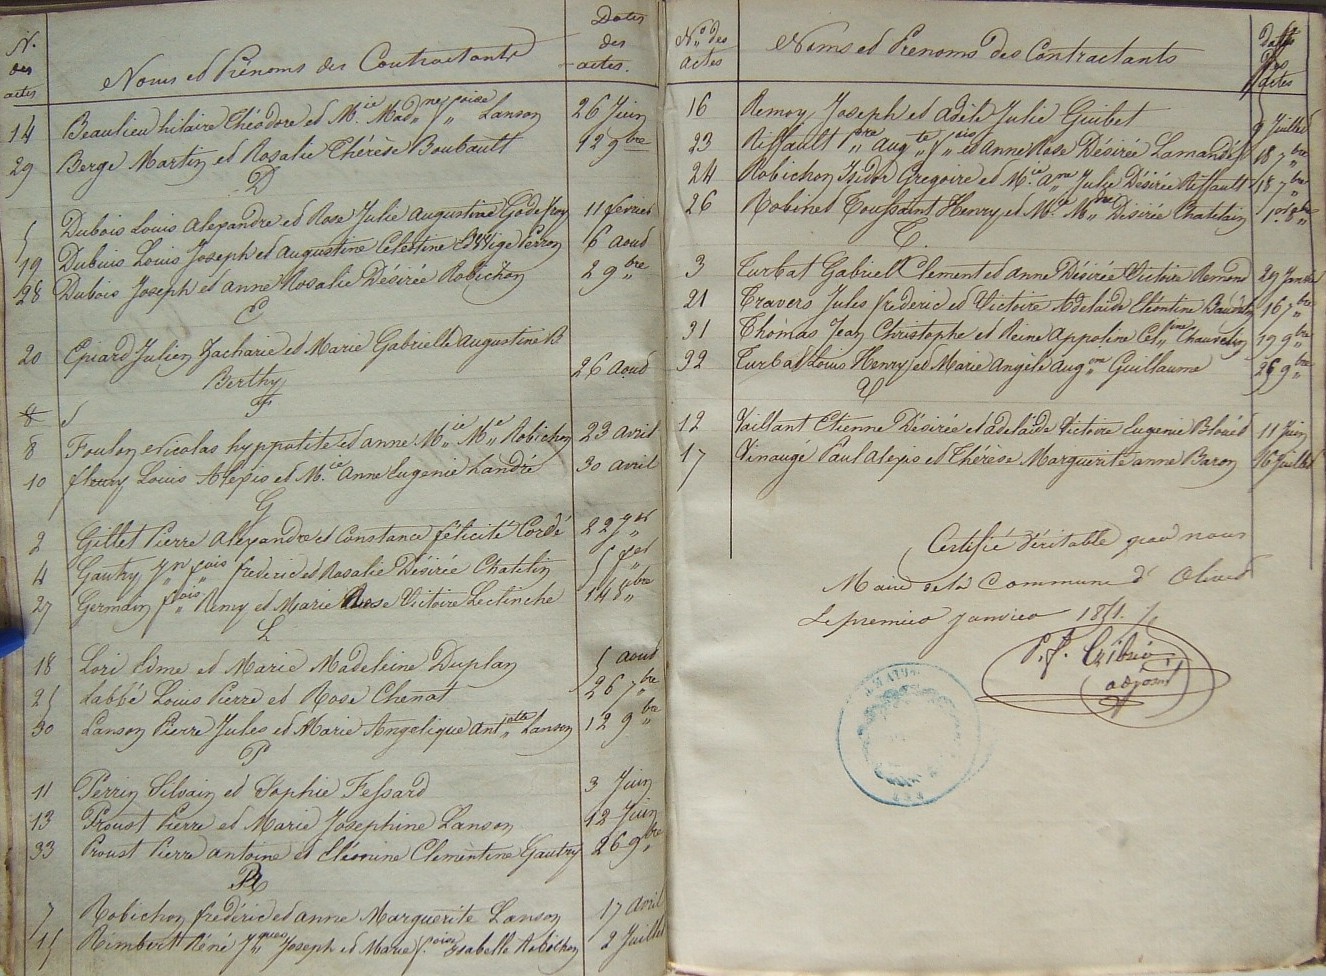 N.os des actes
Noms et Prénoms des Contractants
Dates des actes.
14 Beaulieu hilaire Théodore et M.ie Mad.ne f.çoise Lanson 26 Juin
29 Berge Martin et Rosalie Thérèse Boubault 12 9bre
D
5 Dubois Louis Alexandre et Rose Julie Augustine Godefroy 11 fevrier
19 Dubuis Louis Joseph et Augustine Celestine Edwige Perron 6 aoud
28 Dubois Joseph et Anne Rosalie Désirée Robichon 2 9bre
E
20 Epiard Julien Zacharie et Marie Gabrielle Augustine B
Berthy 26 aoud
F
8
8 Foulon Nicolas hyppolite et anne M.ie M.de Robichon 23 avril
10 fleury Louis Alexis et M.ie Anne Eugenie Landré 30 avril
G
2 Gillet Pierre Alexandre et Constance félicité Cordé 22 Jer
4 Gautry Jn f.çois frederic et Rosalie Désirée Chatelin 5 fer
27 Germain f.çois Remy et Marie Rose Victoire Leclinche 14 8bre
L
18 Lori Edme et Marie Madeleine Duplan 5 aoud
25 Labbé Louis Pierre et Rose Chenat 26 7bre
30 Lanson Pierre Jules et Marie Angelique Ant.tte Lanson 12 9bre
P
11 Perrin Silvain et Sophie Fessard 3 Juin
13 Proust Pierre et Marie Josephine Lanson 12 Juin
33 Proust Pierre Antoine et Eléonine Clementine Gautry 26 9bre
R
7 Robichon frédéric et anne Marguerite Lanson 17 avril
15 Rimbert Réné J.ques Joseph et Marie f.çoise Isabelle Robichon 2 Juillet
N.os des actes
Noms et Prénoms des Contractants
Dates des actes
16 Remoy Joseph et Adèle Julie Guibet 9 Juillet
23 Riffault Pre Aug.te f.çois et Anne Rose Desirée Lamandé 18 7bre
24 Robichon Isidor Gregoire et M.ie Ane Julie Désirée Riffault 18 7bre
26 Robinet Toussaint Henry et M.ie M.ne Désirée Chatelain 1er 8bre
T.
3 Turbat Gabriel Clement et Anne Désirée Victoire Remond 29 Janvier
21 Travers Jules frederic et Victoire Adelaide Eléontine 16 7bre
31 Thomas Jean Christophe et Reine Appoline Cel.ine Chauvelin 19 9bre
32 Turbat Louis Henry et Marie Angèle Aug.ine Guillaume 26 9bre
V
12 Vaillant Etienne Désirée et adelaïde Victoire Eugenie Blouët 11 Juin
17 Vinaugé Paul Alexis et Thérèse Marguerite anne Baron 16 Juillet
Certifié Véritable par nous
Maire de la Commune d'Olivet
Le premier Janvier 1851.
P. f. Cribier
adjoint